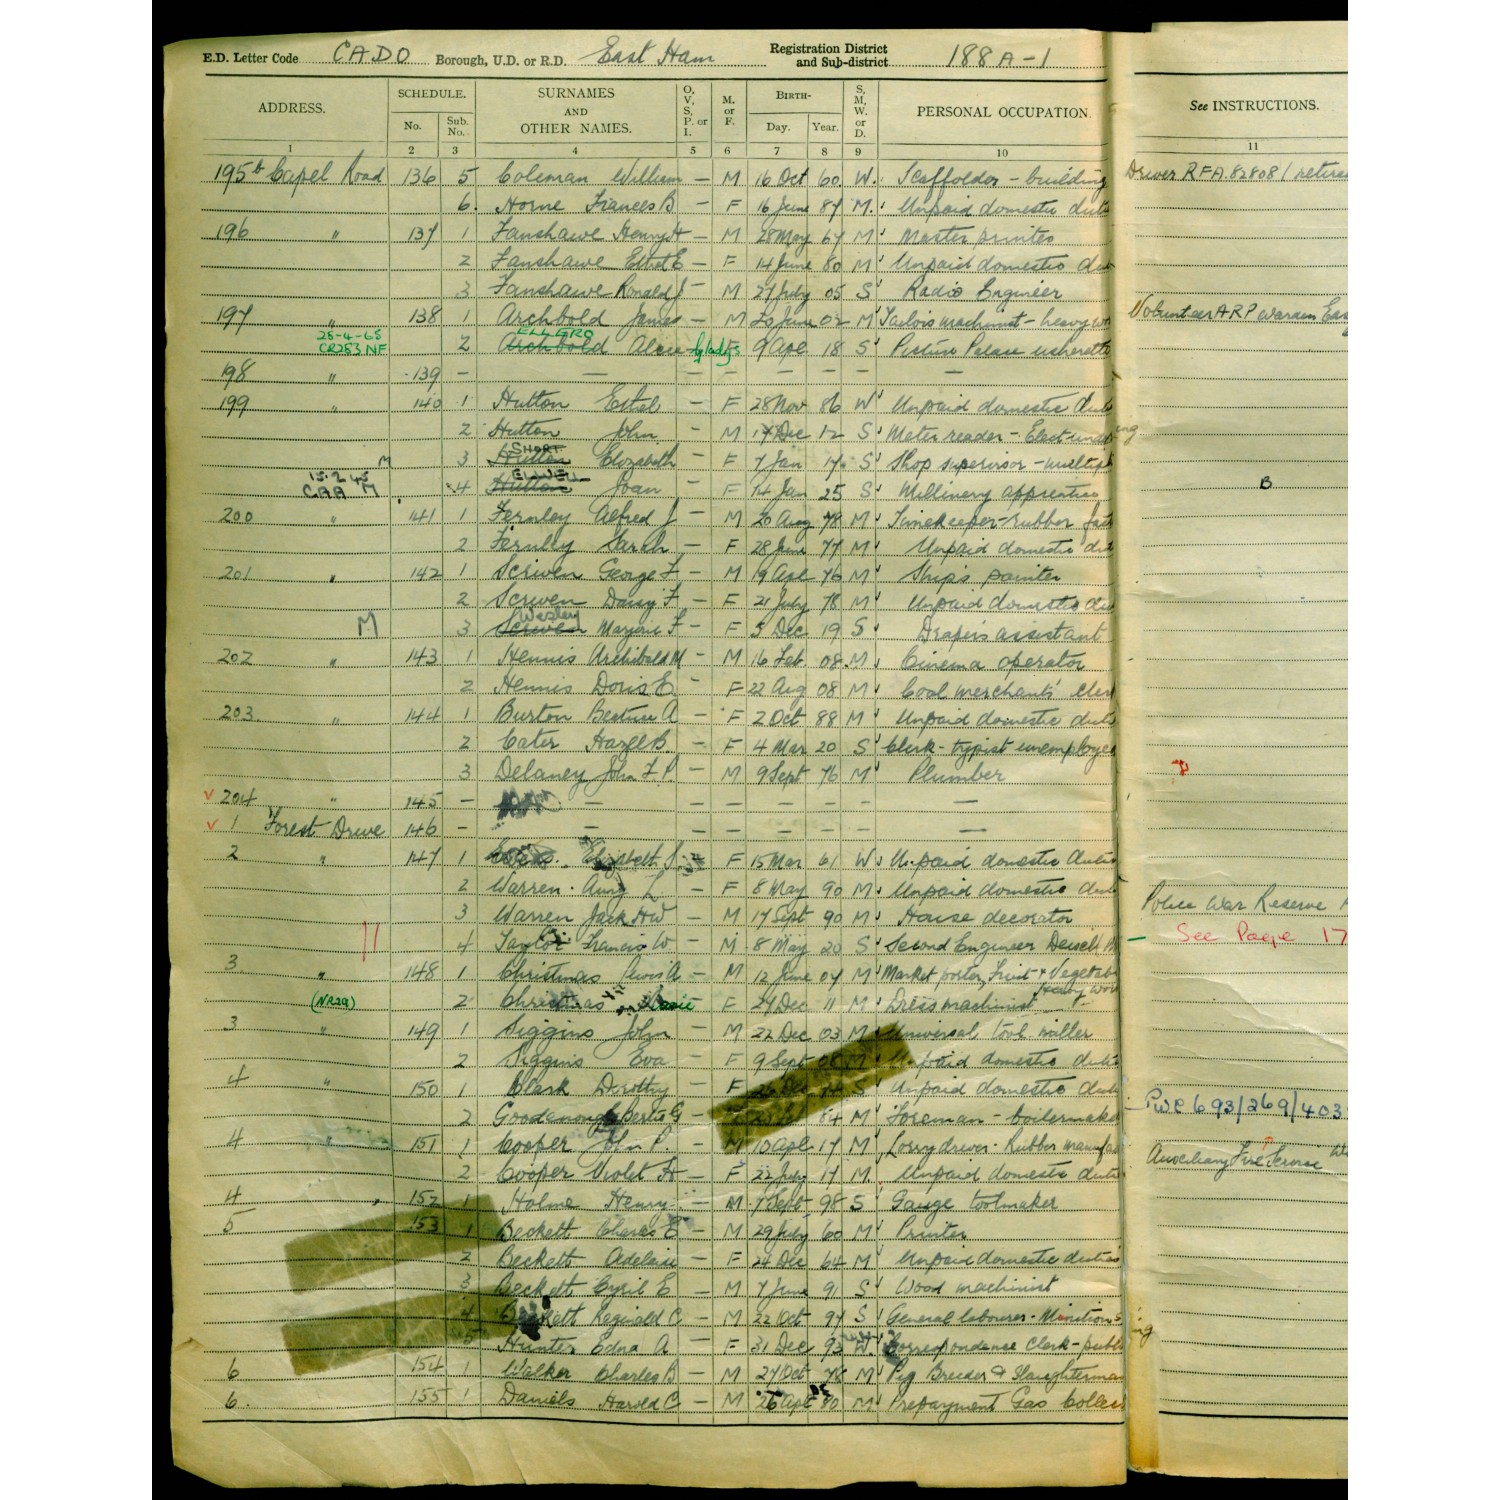 E.D. Letter Code CADO Borough, U.D. or R.D. East Ham Registration District and Sub-district 188A-1
ADDRESS. SCHEDULE. No. Sub. No. SURNAMES AND OTHER NAMES. O, V, S, P. or I. M. or F. BIRTH- Day. Year. S, M, W. or D. PERSONAL OCCUPATION. See INSTRUCTIONS.
1 2 3 4 5 6 7 8 9 10 11
195b Capel Road 136 5 Coleman William — M 16 Oct 60 W. Scaffolder - building Driver RFA. 82808 / retired
6. Horne Frances B — F 16 June 87 M. Unpaid domestic duti
196 " 137 1 Fanshawe Henry H — M 28 May 67 M Master printer
2 Fanshawe Ethel E — F 14 June 80 M Unpaid domestic du
3 Fanshawe Ronald J — M 27 July 05 S Radio Engineer
197 " 138 1 Archbold James — M 20 June 02 M Tailors machinist - heavy wo Volunteer ARP Warden Eas
25-4-65 CR283 NF 2 Archbold ELLERO Alice Gladys F 9 Apl 18 S Picture Palace usherette
198 " 139 — — — — — — —
199 " 140 1 Hutton Ethel — F 28 Nov 86 W Unpaid domestic duti
2 Hutton John — M 17 Dec 12 S Meter reader - Elect undertaking
M 3 Hutton SHORT Elizabeth — F 7 Jan 17 S Shop supervisor - multiple
15.2.45 CAA M 4 Hutton ELWELL Joan F 14 Jan 25 S Millinery apprentice B
200 " 141 1 Fernley Alfred J — M 20 Aug 78 M Timekeeper - rubber fact
2 Fernley Sarah — F 28 June 77 M Unpaid domestic dut
201 " 142 1 Scriven George F — M 19 Apl 76 M Ship's painter
2 Scriven Daisy F — F 21 July 78 M Unpaid domestic du
M 3 Scriven Wesley Marjorie F — F 5 Dec 19 S Drapers assistant
202 " 143 1 Hennis Archibald M — M 16 Feb 08 M Cinema operator
2 Hennis Doris E. — F 22 Aug 08 M Coal merchants' cler
203 " 144 1 Burton Beatrice A — F 2 Oct 88 M Unpaid domestic duti
2 Cater Hazel B. — F 4 Mar 20 S Clerk - typist unemployed
3 Delaney John F P. — M 9 Sept 76 M Plumber
v 204 " 145 — — — — —
v 1 Forest Drive 146 — — — — —
2 " 147 1 Elizabeth S. F 15 Mar 61 W Unpaid domestic duti
2 Warren. Amy L — F 8 May 90 M Unpaid domestic duti
3 Warren Jack H W — M 17 Sept 90 M House decorator Police War Reserve
4 Taylor Francis W — M 8 May 20 S Second Engineer Deisel See Page 17
3 " 148 1 Christmas Lewis A — M 12 June 07 M Market porter, Fruit + Vegetab
(NR29) 2 Christmas F 27 Dec 11 M Dress machinist heavy wor
3 " 149 1 Siggins John M 22 Dec 03 M Universal tool miller
2 Siggins Eva — F 9 Sept 08 M Unpaid domestic duti
4 " 150 1 Clark Dorothy — F 26 Dec 74 S Unpaid domestic duti
2 Goodenough Bertie G — 84 M Foreman - boilermaker PWC 693/269/403
4 " 151 1 Cooper John P. — M 10 Apl 17 M Lorry driver - Rubber manufac Auxiliary Fire Service
2 Cooper Violet H — F 22 July 17 M. Unpaid domestic duti
4 152 1 Holme Henry — M 7 Sept 98 S Gauge toolmaker
5 153 1 Beckett Charles E — M 29 July 60 M Printer
2 Beckett Adelaide — F 24 Dec 64 M Unpaid domestic duties
3 Beckett Cyril E — M 7 June 91 S Wood machinist
4 Beckett Reginald C — M 22 Oct 97 S General labourer - Munitions
5 Hunter Edna A F 31 Dec 93 W. Correspondence clerk - publishing
6 154 1 Walker Charles B — M 27 Oct 78 M Pig Breeder & Slaughterman
6. 155 1 Daniels Harold C — M 26 Apl 80 M Prepayment Gas collec